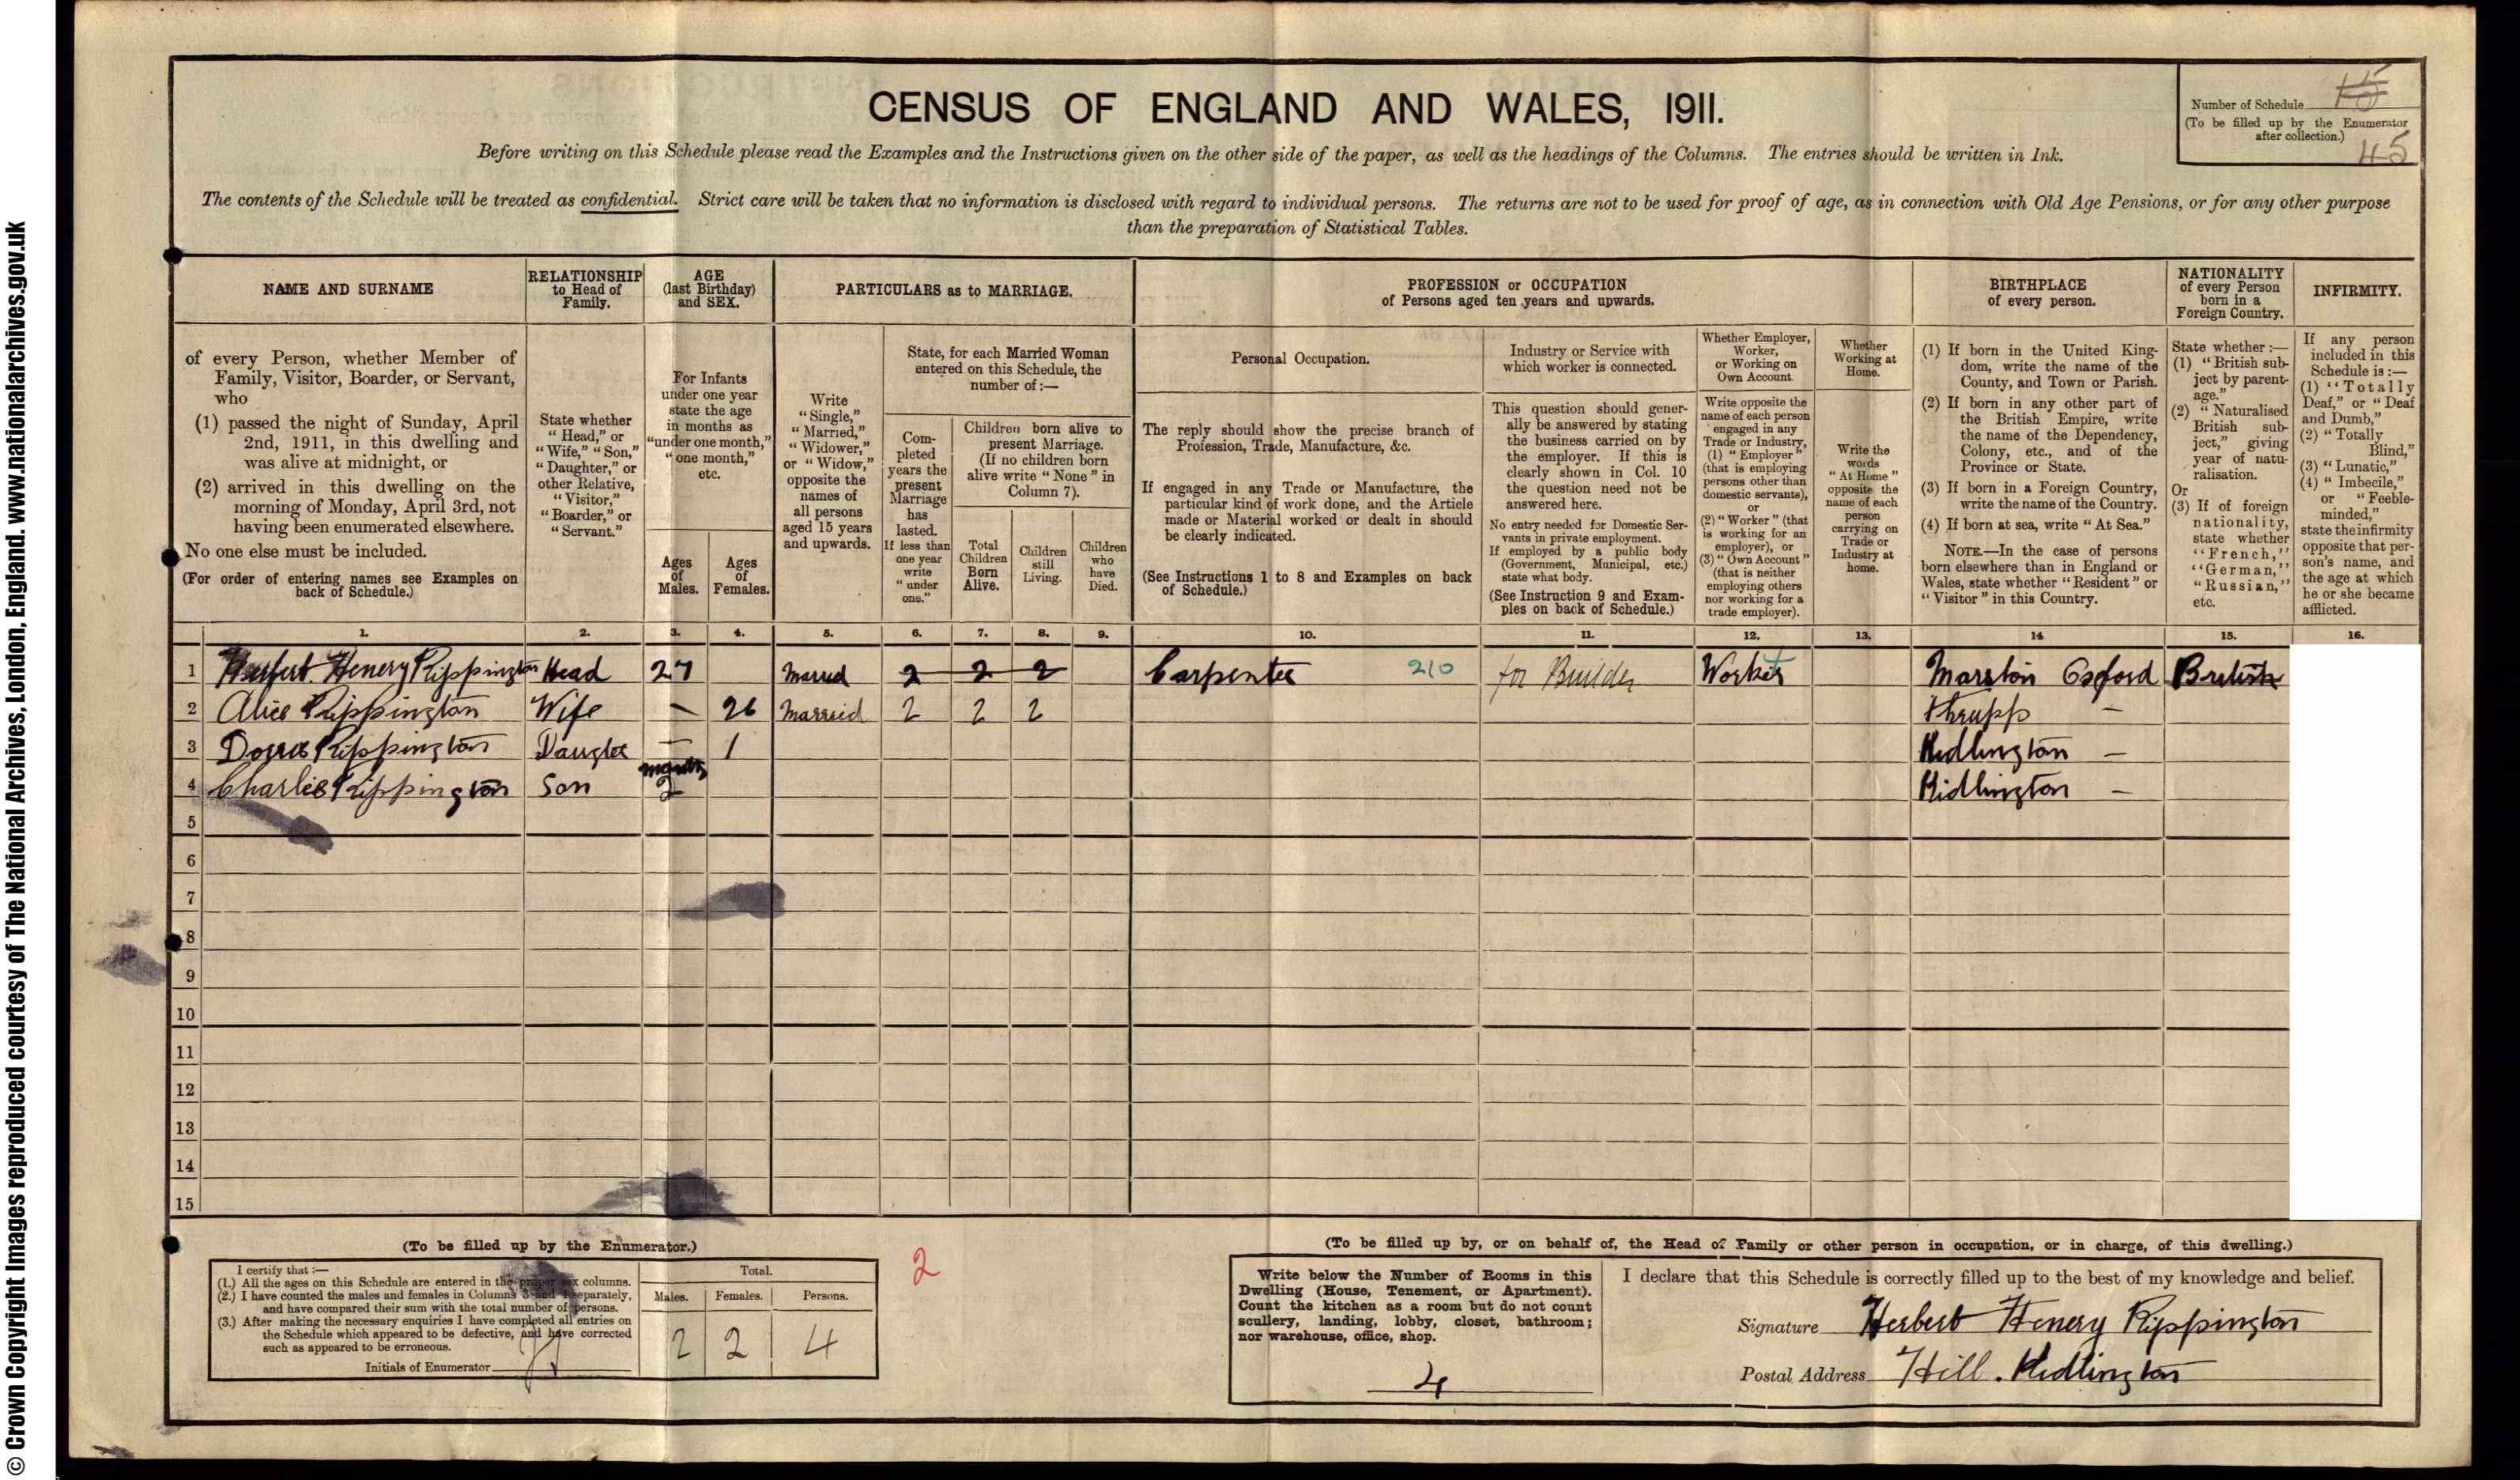 © Crown Copyright Images reproduced courtesy of The National Archives, London, England. www.nationalarchives.gov.uk
CENSUS OF ENGLAND AND WALES, 1911.
Number of Schedule 15
(To be filled up by the Enumerator
after collection.)
45
Before writing on this Schedule please read the Examples and the Instructions given on the other side of the paper, as well as the headings of the Columns. The entries should be written in Ink.
The contents of the Schedule will be treated as confidential. Strict care will be taken that no information is disclosed with regard to individual persons. The returns are not to be used for proof of age, as in connection with Old Age Pensions, or for any other purpose
than the preparation of Statistical Tables.
NAME AND SURNAME
of every Person, whether Member of
Family, Visitor, Boarder, or Servant,
who
(1) passed the night of Sunday, April
2nd, 1911, in this dwelling and
was alive at midnight, or
(2) arrived in this dwelling on the
morning of Monday, April 3rd, not
having been enumerated elsewhere.
No one else must be included.
(For order of entering names see Examples on
back of Schedule.)
RELATIONSHIP
to Head of
Family.
State whether
"Head," or
"Wife," "Son,"
"Daughter," or
other Relative,
"Visitor,"
"Boarder," or
"Servant."
AGE
(last Birthday)
and SEX.
For Infants
under one year
state the age
in months as
"under one month,"
"one month,"
etc.
Ages
of
Males.
Ages
of
Females.
PARTICULARS as to MARRIAGE.
Write
"Single,"
"Married,"
"Widower,"
or "Widow,"
opposite the
names of
all persons
aged 15 years
and upwards.
State, for each Married Woman
entered on this Schedule, the
number of :—
Com-
pleted
years the
present
Marriage
has
lasted.
If less than
one year
write
"under
one."
Children born alive to
present Marriage.
(If no children born
alive write "None" in
Column 7).
Total
Children
Born
Alive.
Children
still
Living.
Children
who
have
Died.
PROFESSION or OCCUPATION
of Persons aged ten years and upwards.
Personal Occupation.
The reply should show the precise branch of
Profession, Trade, Manufacture, &c.
If engaged in any Trade or Manufacture, the
particular kind of work done, and the Article
made or Material worked or dealt in should
be clearly indicated.
(See Instructions 1 to 8 and Examples on back
of Schedule.)
Industry or Service with
which worker is connected.
This question should gener-
ally be answered by stating
the business carried on by
the employer. If this is
clearly shown in Col. 10
the question need not be
answered here.
No entry needed for Domestic Ser-
vants in private employment.
If employed by a public body
(Government, Municipal, etc.)
state what body.
(See Instruction 9 and Exam-
ples on back of Schedule.)
Whether Employer,
Worker,
or Working on
Own Account.
Write opposite the
name of each person
engaged in any
Trade or Industry,
(1) "Employer"
(that is employing
persons other than
domestic servants),
or
(2) "Worker" (that
is working for an
employer), or
(3) "Own Account"
(that is neither
employing others
nor working for a
trade employer).
Whether
Working at
Home.
Write the
words
"At Home"
opposite the
name of each
person
carrying on
Trade or
Industry at
home.
BIRTHPLACE
of every person.
(1) If born in the United King-
dom, write the name of the
County, and Town or Parish.
(2) If born in any other part of
the British Empire, write
the name of the Dependency,
Colony, etc., and of the
Province or State.
(3) If born in a Foreign Country,
write the name of the Country.
(4) If born at sea, write "At Sea."
NOTE.—In the case of persons
born elsewhere than in England or
Wales, state whether "Resident" or
"Visitor" in this Country.
NATIONALITY
of every Person
born in a
Foreign Country.
State whether :—
(1) "British sub-
ject by parent-
age."
(2) "Naturalised
British sub-
ject," giving
year of natu-
ralisation.
Or
(3) If of foreign
nationality,
state whether
"French,"
"German,"
"Russian,"
etc.
INFIRMITY.
If any person
included in this
Schedule is :—
(1) "Totally
Deaf," or "Deaf
and Dumb,"
(2) "Totally
Blind,"
(3) "Lunatic,"
(4) "Imbecile,"
or "Feeble-
minded,"
state the infirmity
opposite that per-
son's name, and
the age at which
he or she became
afflicted.
1. 2. 3. 4. 5. 6. 7. 8. 9. 10. 11. 12. 13. 14 15. 16.
1 Herbert Henery Rippington Head 27 Married 2 2 2 Carpenter 210 for Builder Worker Marston Oxford British
2 Alice Rippington Wife — 26 Married 2 2 2 Thrupp —
3 Rippington Daughter — 1 Kidlington —
4 Charlie Rippington Son months 2 Kidlington —
5
6
7
8
9
10
11
12
13
14
15
(To be filled up by the Enumerator.)
I certify that :—
(1.) All the ages on this Schedule are entered in the proper sex columns.
(2.) I have counted the males and females in Columns 3 and 4 separately,
and have compared their sum with the total number of persons.
(3.) After making the necessary enquiries I have completed all entries on
the Schedule which appeared to be defective, and have corrected
such as appeared to be erroneous.
Initials of Enumerator
Total.
Males. Females. Persons.
2 2 4
2
(To be filled up by, or on behalf of, the Head of Family or other person in occupation, or in charge, of this dwelling.)
Write below the Number of Rooms in this
Dwelling (House, Tenement, or Apartment).
Count the kitchen as a room but do not count
scullery, landing, lobby, closet, bathroom;
nor warehouse, office, shop.
4
I declare that this Schedule is correctly filled up to the best of my knowledge and belief.
Signature Herbert Henery Rippington
Postal Address Hill. Kidlington